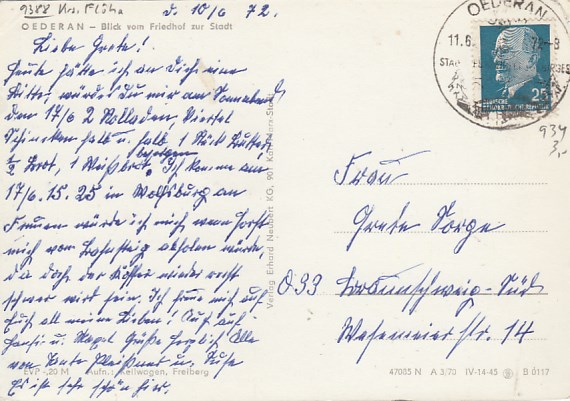 9388 Krs. Flöha
d. 10/6 72.
OEDERAN – Blick vom Friedhof zur Stadt
OEDERAN
11.6
25
934
3,-
Liebe Grete!
Heute hätte ich an Dich eine
Bitte, würdest Du mir am Sonnabend
den 17/6 2 Viertel
Schinken halb u. halb, 1 Stück Butter,
½ Brot, 1 Weißbrot besorgen. Ich komme am
17/6. 15.25 in Wolfsburg an
Freuen würde ich mich wenn Horst
mich vom Bahnsteig abholen würde,
da doch der Koffer wieder recht
schwer wird sein. Ich freue mich auf
Euch all meine Lieben! Auch auf
Hansi u. Grüße herzlich Alle
von Eure u.
Es ist sehr schön hier.
Verlag Erhard Neubert KG, 90 Karl-Marx-Stadt
Frau
Grete Sorge
D 33 Braunschweig-Süd
Wesemeierstr. 14
EVP -,20 M Aufn.: Kellwagen, Freiberg
47085 N A 3/70 IV-14-45 B 0117